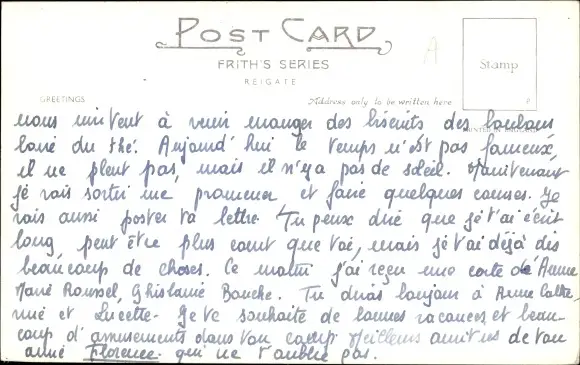 POST CARD
FRITH'S SERIES
REIGATE
Stamp
GREETINGS
Address only to be written here
nous invitent à venir manger des biscuits des bonbons
boire du thé. Aujourd'hui le temps n'est pas fameux,
il ne pleut pas, mais il n'y a pas de soleil. Maintenant
je vais sortir me promener et faire quelques courses. Je
vais aussi poster ta lettre. Tu peux dire que je t'ai écrit
long, peut être plus court que toi, mais je t'ai déjà dis
beaucoup de choses. Ce matin j'ai reçu une carte de Anne
Marie Roussel, Ghislaine Bouche. Tu diras bonjour à Anne Cathe
rine et Lucette. Je te souhaite de bonnes vacances et beau-
coup d'amusements dans ton camp. Meilleurs amitiés de ton
amie Florence qui ne t'oublie pas.